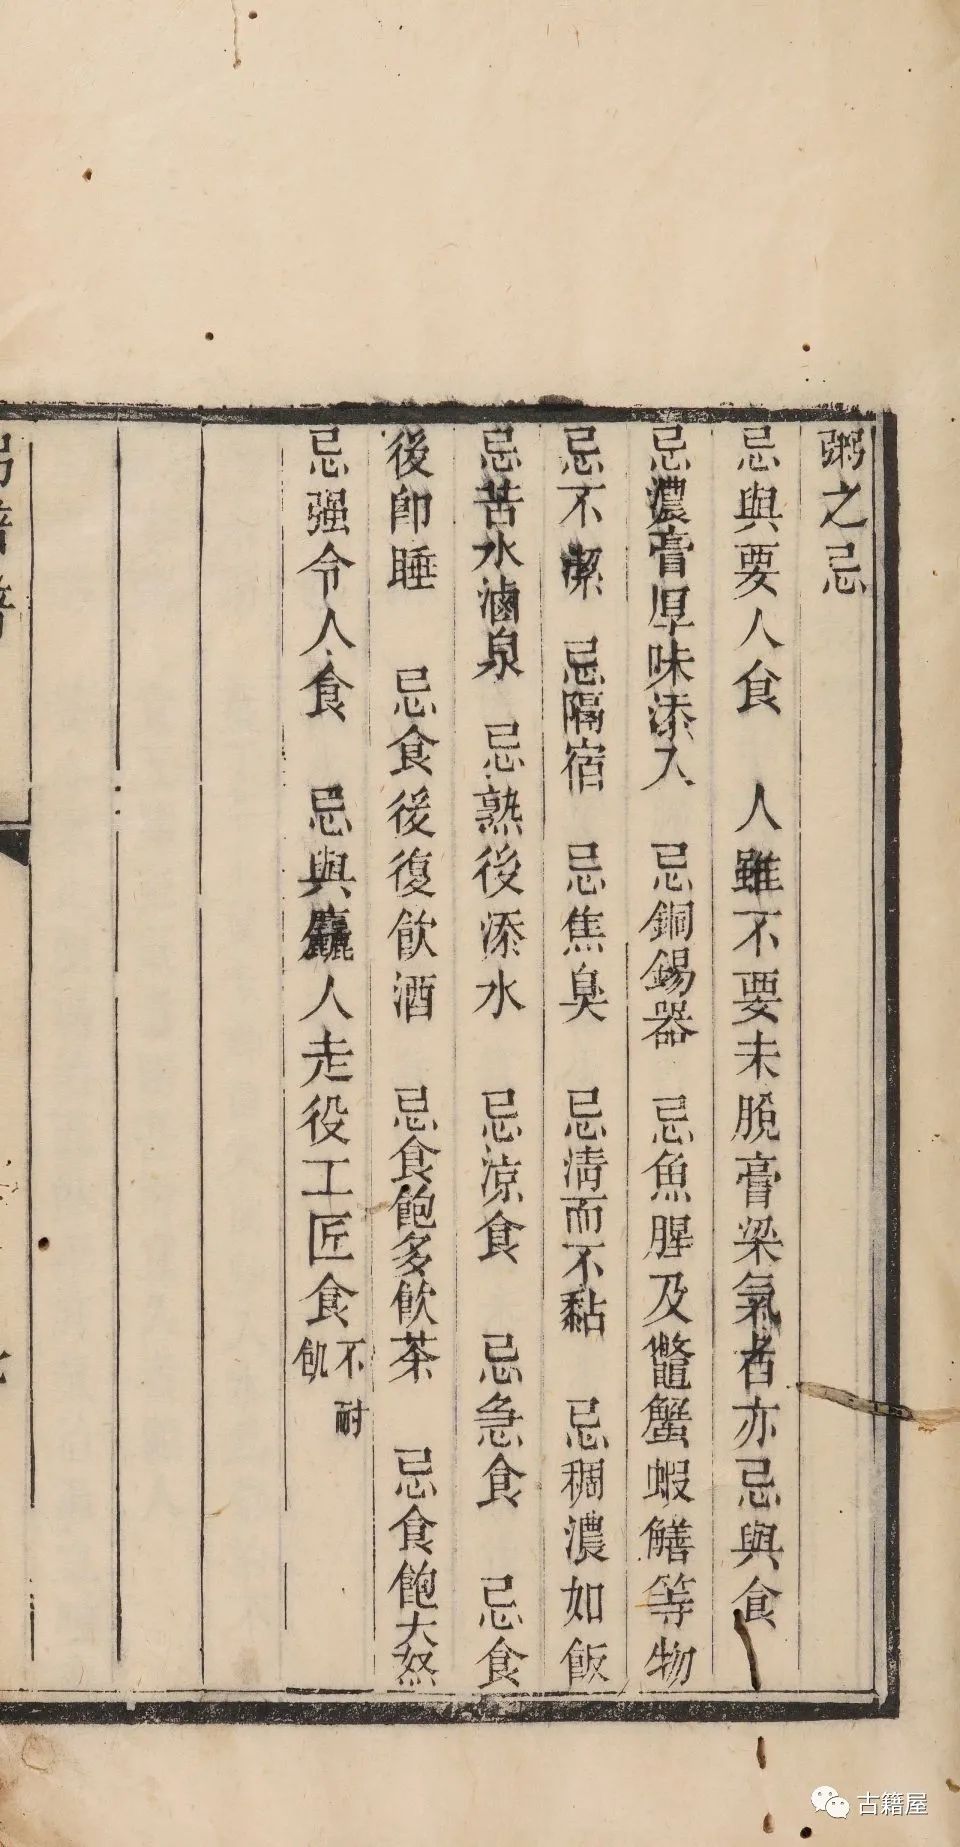 粥之忌
忌與要人食　人雖不要未脫膏梁氣者亦忌與食
忌濃膏厚味添入　忌銅錫器　忌魚腥及鼈蟹蝦鱔等物
忌不潔　忌隔宿　忌焦臭　忌淸而不黏　忌稠濃如飯
忌苦水滷泉　忌熟後添水　忌涼食　忌急食　忌食
後卽睡　忌食後復飮酒　忌食飽多飮茶　忌食飽大怒
忌强令人食　忌與麤人走役工匠食不耐飢
古籍屋